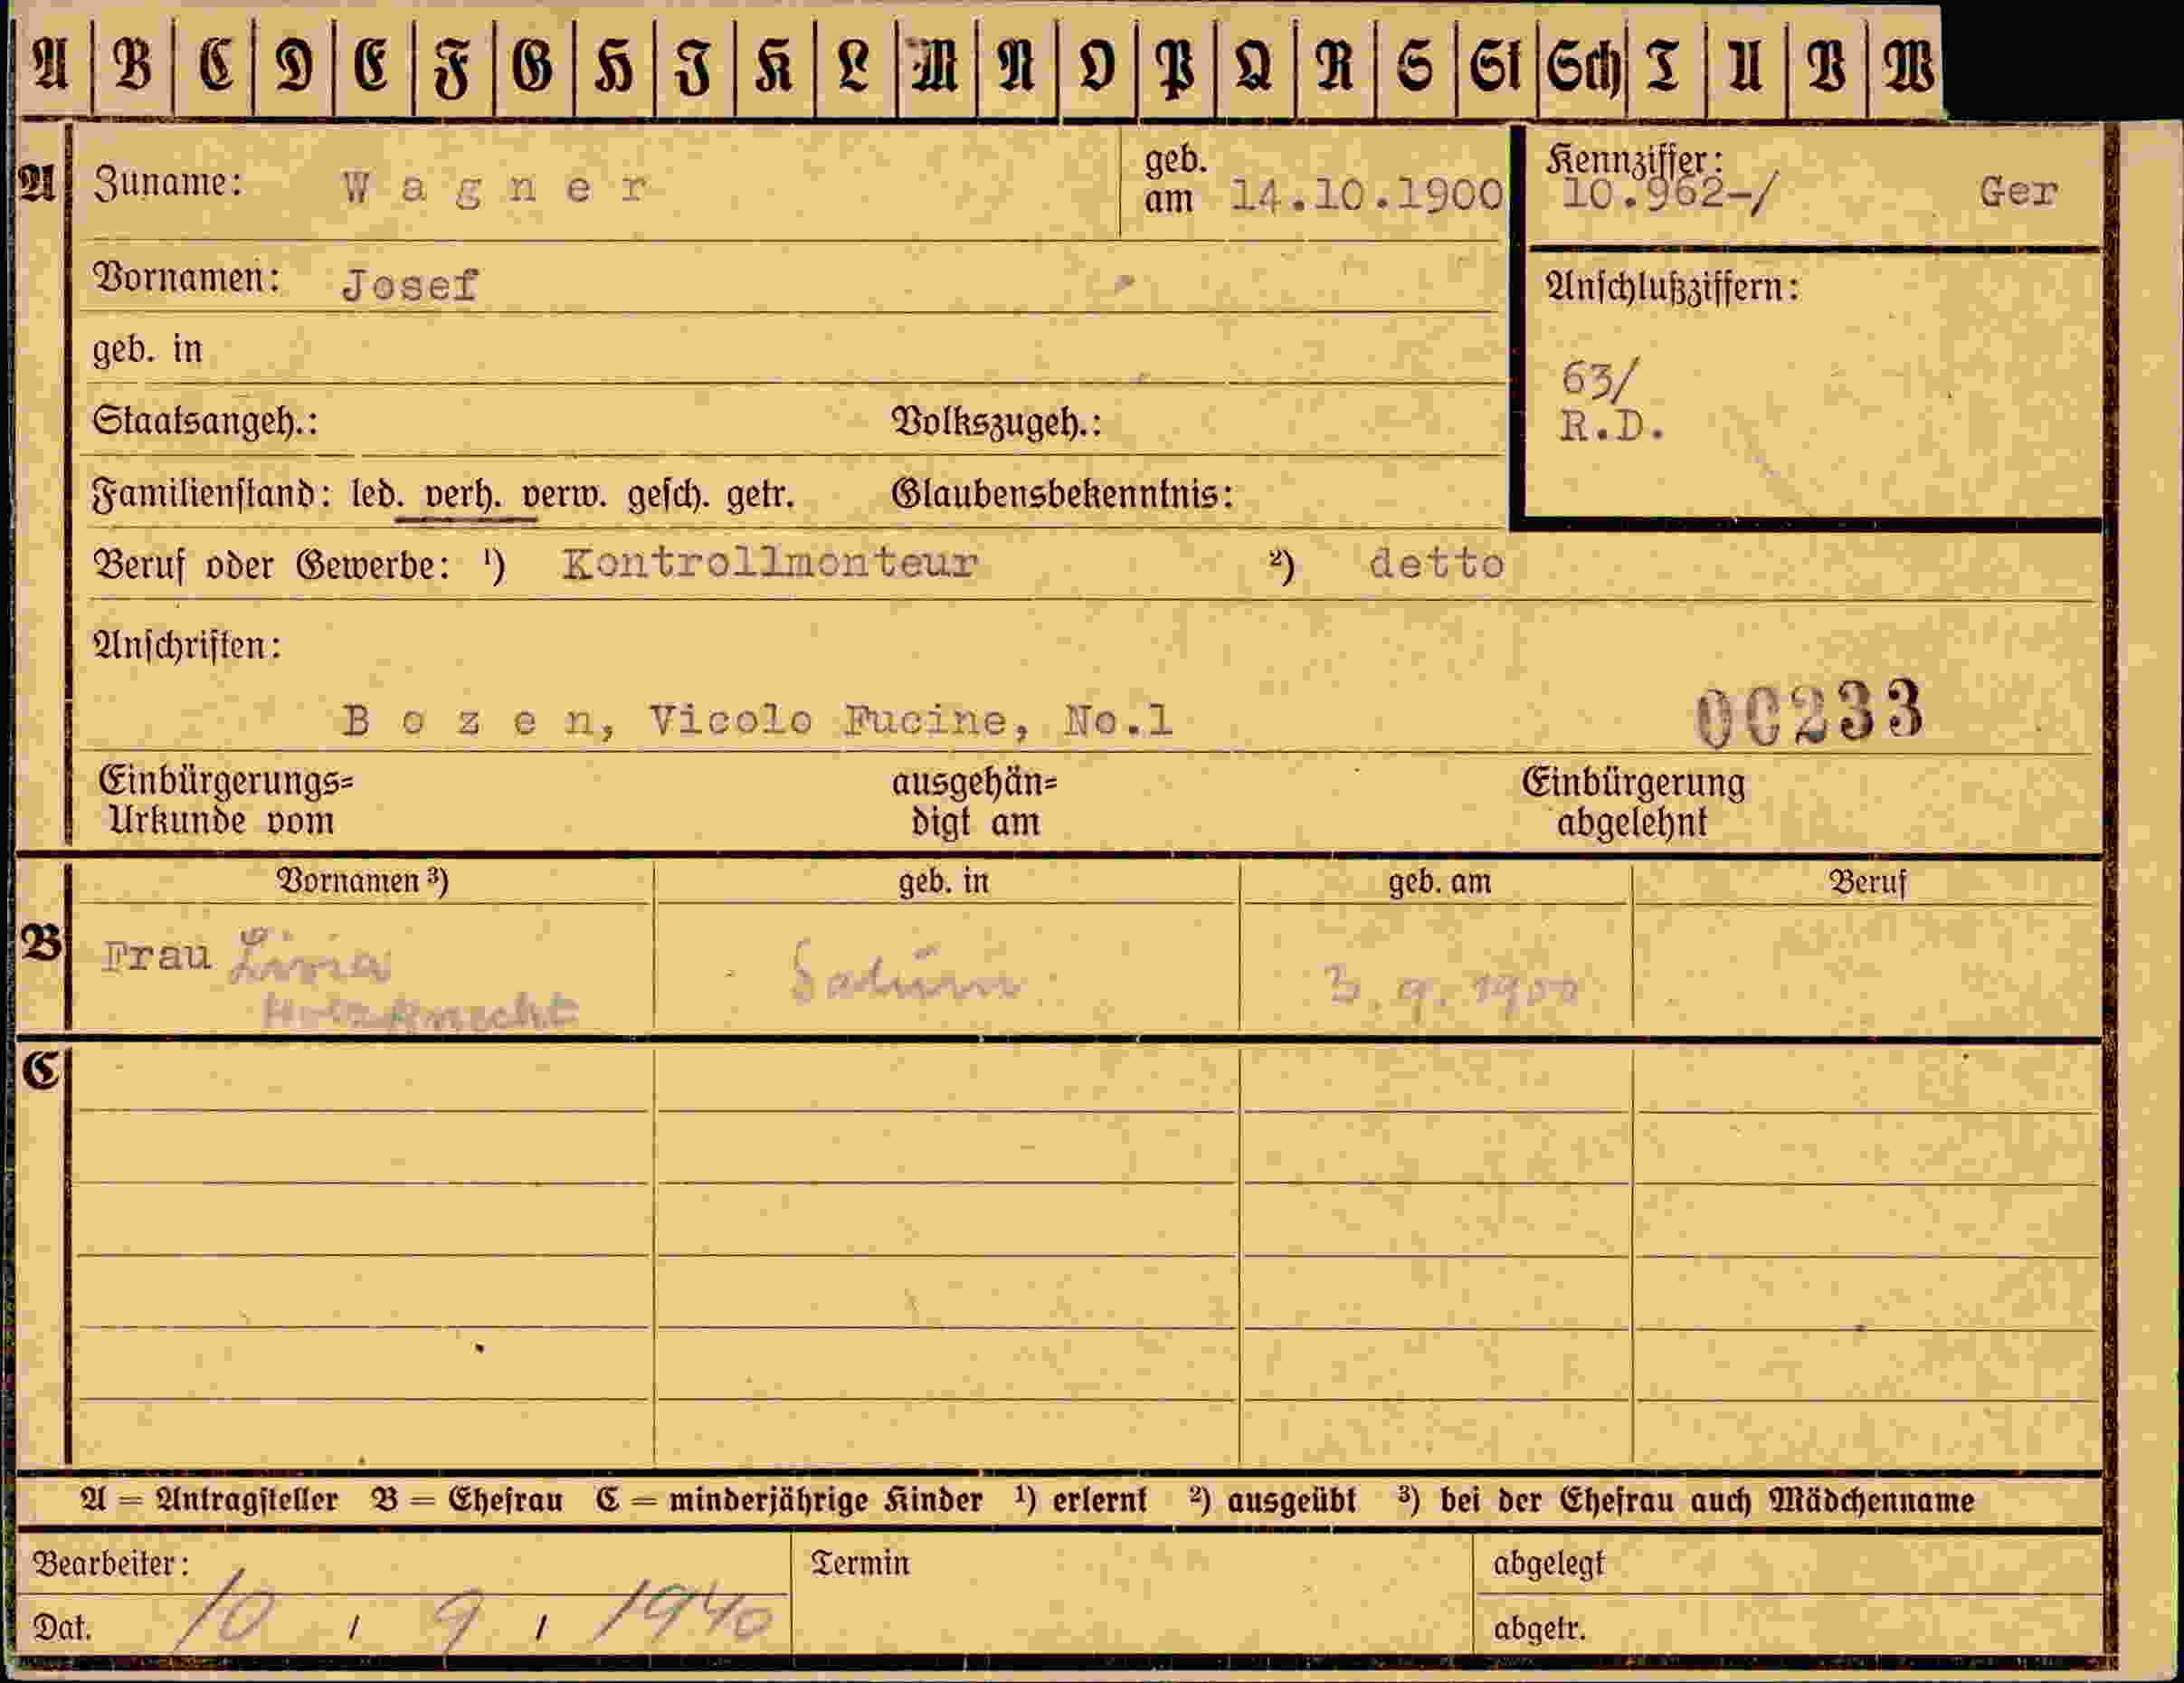 A B C D E F G H J K L M N O P Q R S St Sch T U V W
A Zuname: Wagner geb. am 14.10.1900 Kennziffer: 10.962-/ Ger
Vornamen: Josef Anschlußziffern:
geb. in
63/
Staatsangeh.: Volkszugeh.: R.D.
Familienstand: led. verh. verw. gesch. getr. Glaubensbekenntnis:
Beruf oder Gewerbe: ¹) Kontrollmonteur ²) detto
Anschriften:
Bozen, Vicolo Fucine, No.1 00233
Einbürgerungs= ausgehän= Einbürgerung
Urkunde vom digt am abgelehnt
Vornamen ³) geb. in geb. am Beruf
B Frau 3.9.1900
C
A = Antragsteller B = Ehefrau C = minderjährige Kinder ¹) erlernt ²) ausgeübt ³) bei der Ehefrau auch Mädchenname
Bearbeiter: Termin abgelegt
Dat. 10 / 9 / 1940 abgetr.